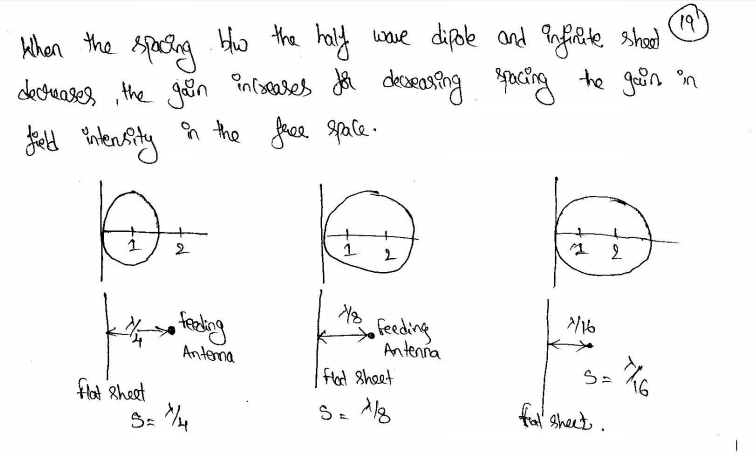 When the spacing b/w the half wave dipole and infinite sheet 19
decreases, the gain increases for decreasing spacing the gain in
field intensity in the free space.
1 2 1 2 1 2
λ/4 feeding Antenna
flat sheet
S = λ/4
λ/8 feeding Antenna
flat sheet
S = λ/8
λ/16
S = λ/16
flat sheet.